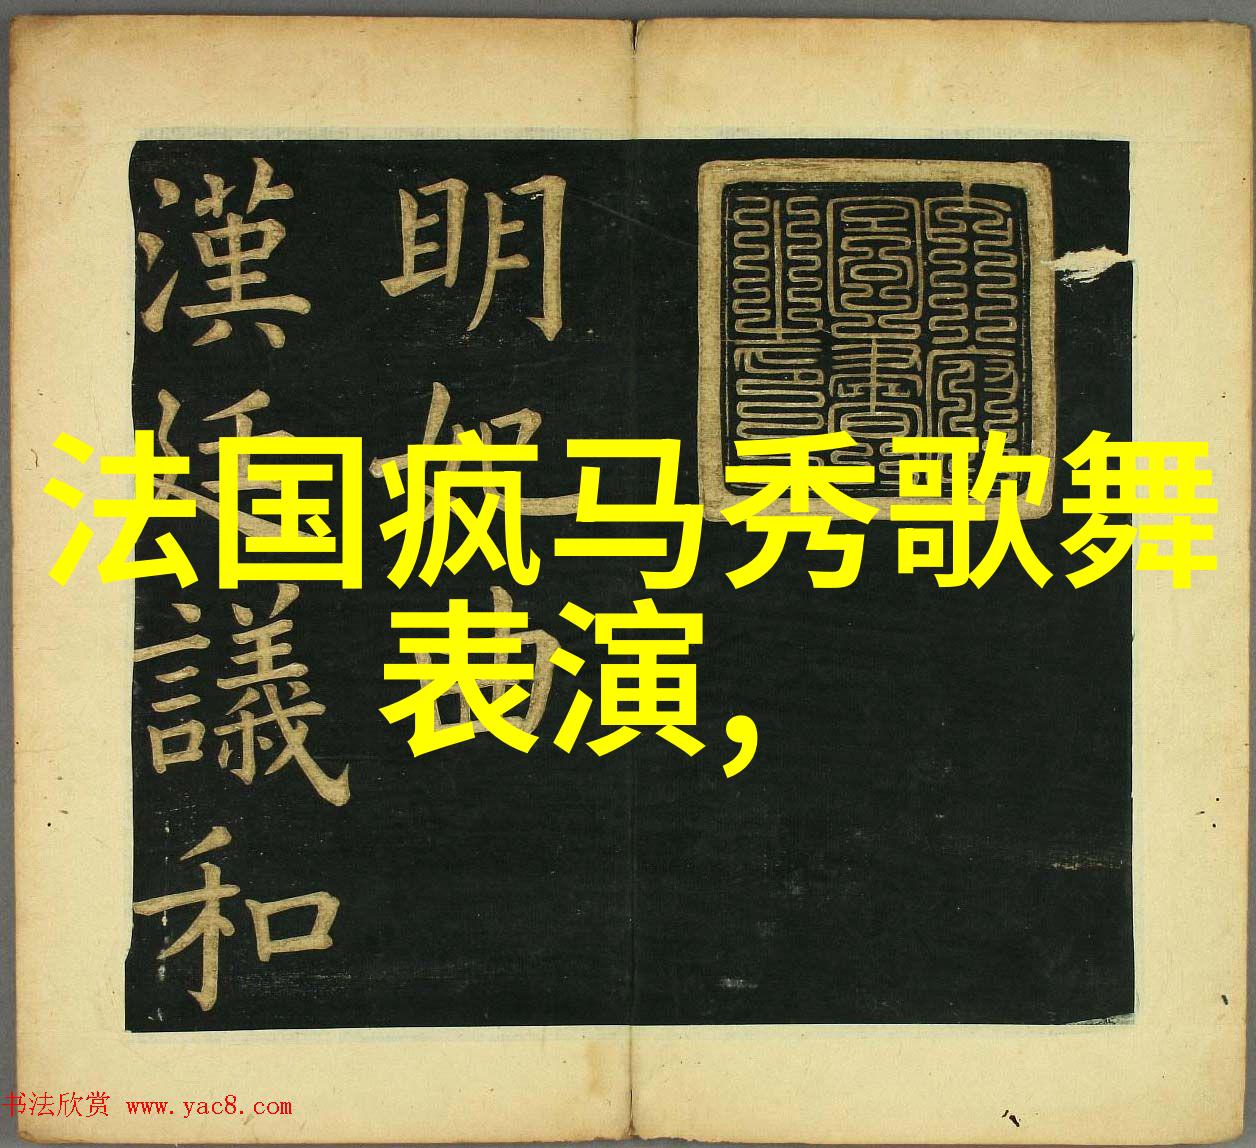 法国疯马秀歌舞
表演,
眀妃曲
漢廷議和
书法欣赏 www.yac8.com